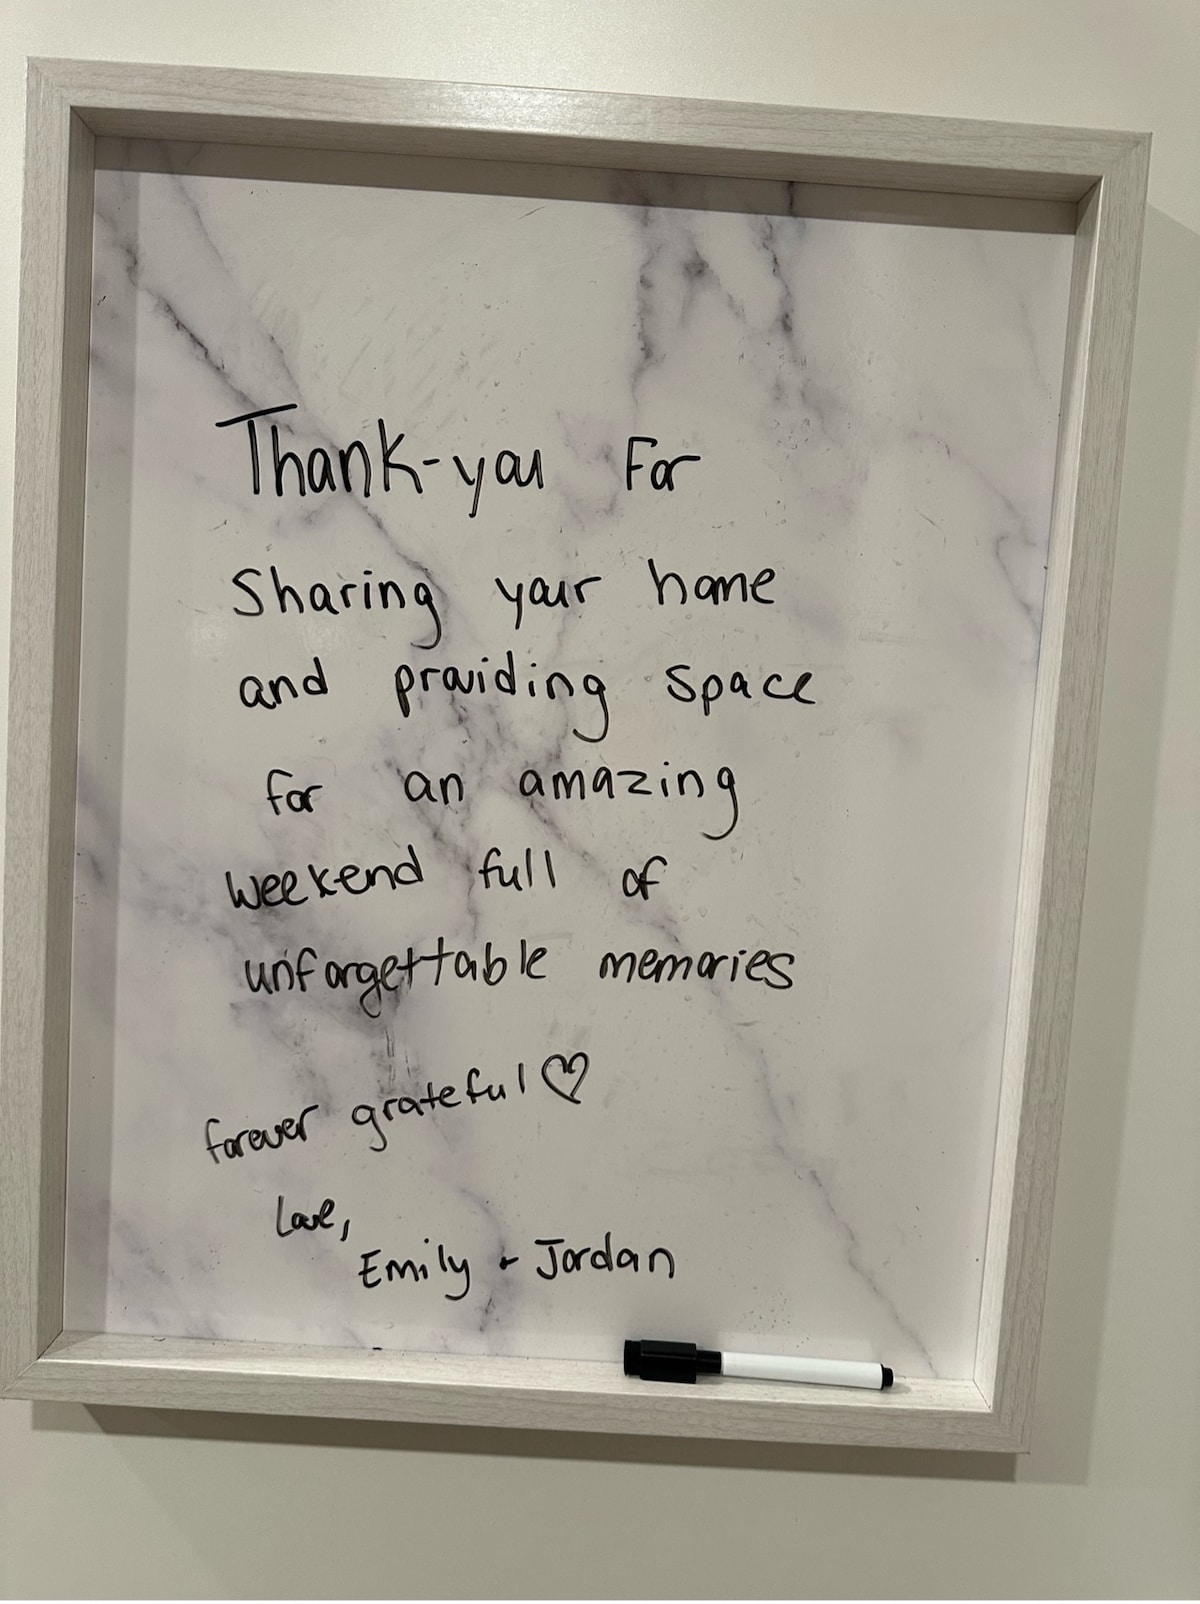 Thank-you For
Sharing your home
and providing space
for an amazing
weekend full of
unforgettable memories
forever grateful ♡
Love,
Emily + Jordan